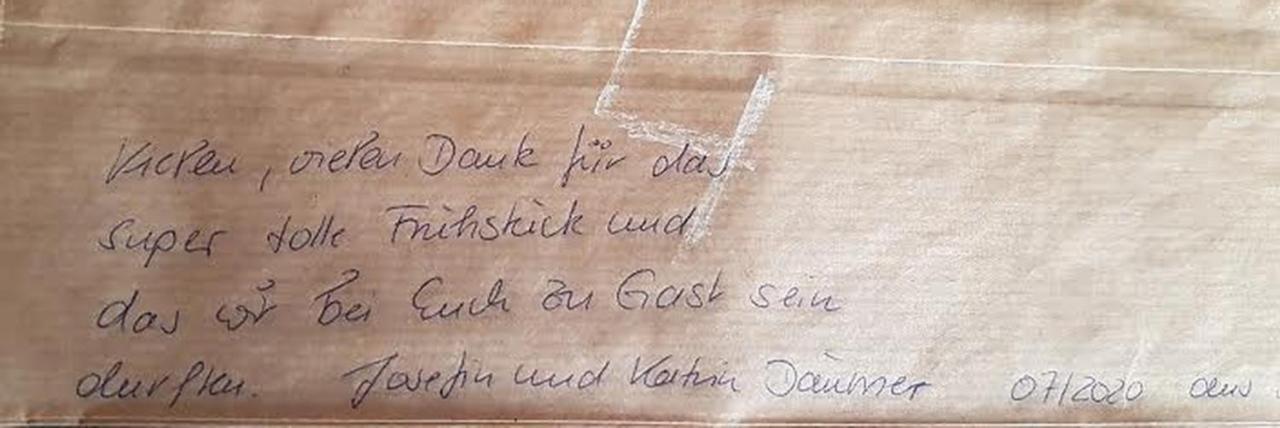 Vielen, vielen Dank für das
super tolle Frühstück und
das wir bei Euch zu Gast sein
durften. Josefin und Katrin Däumer 07/2020 aus